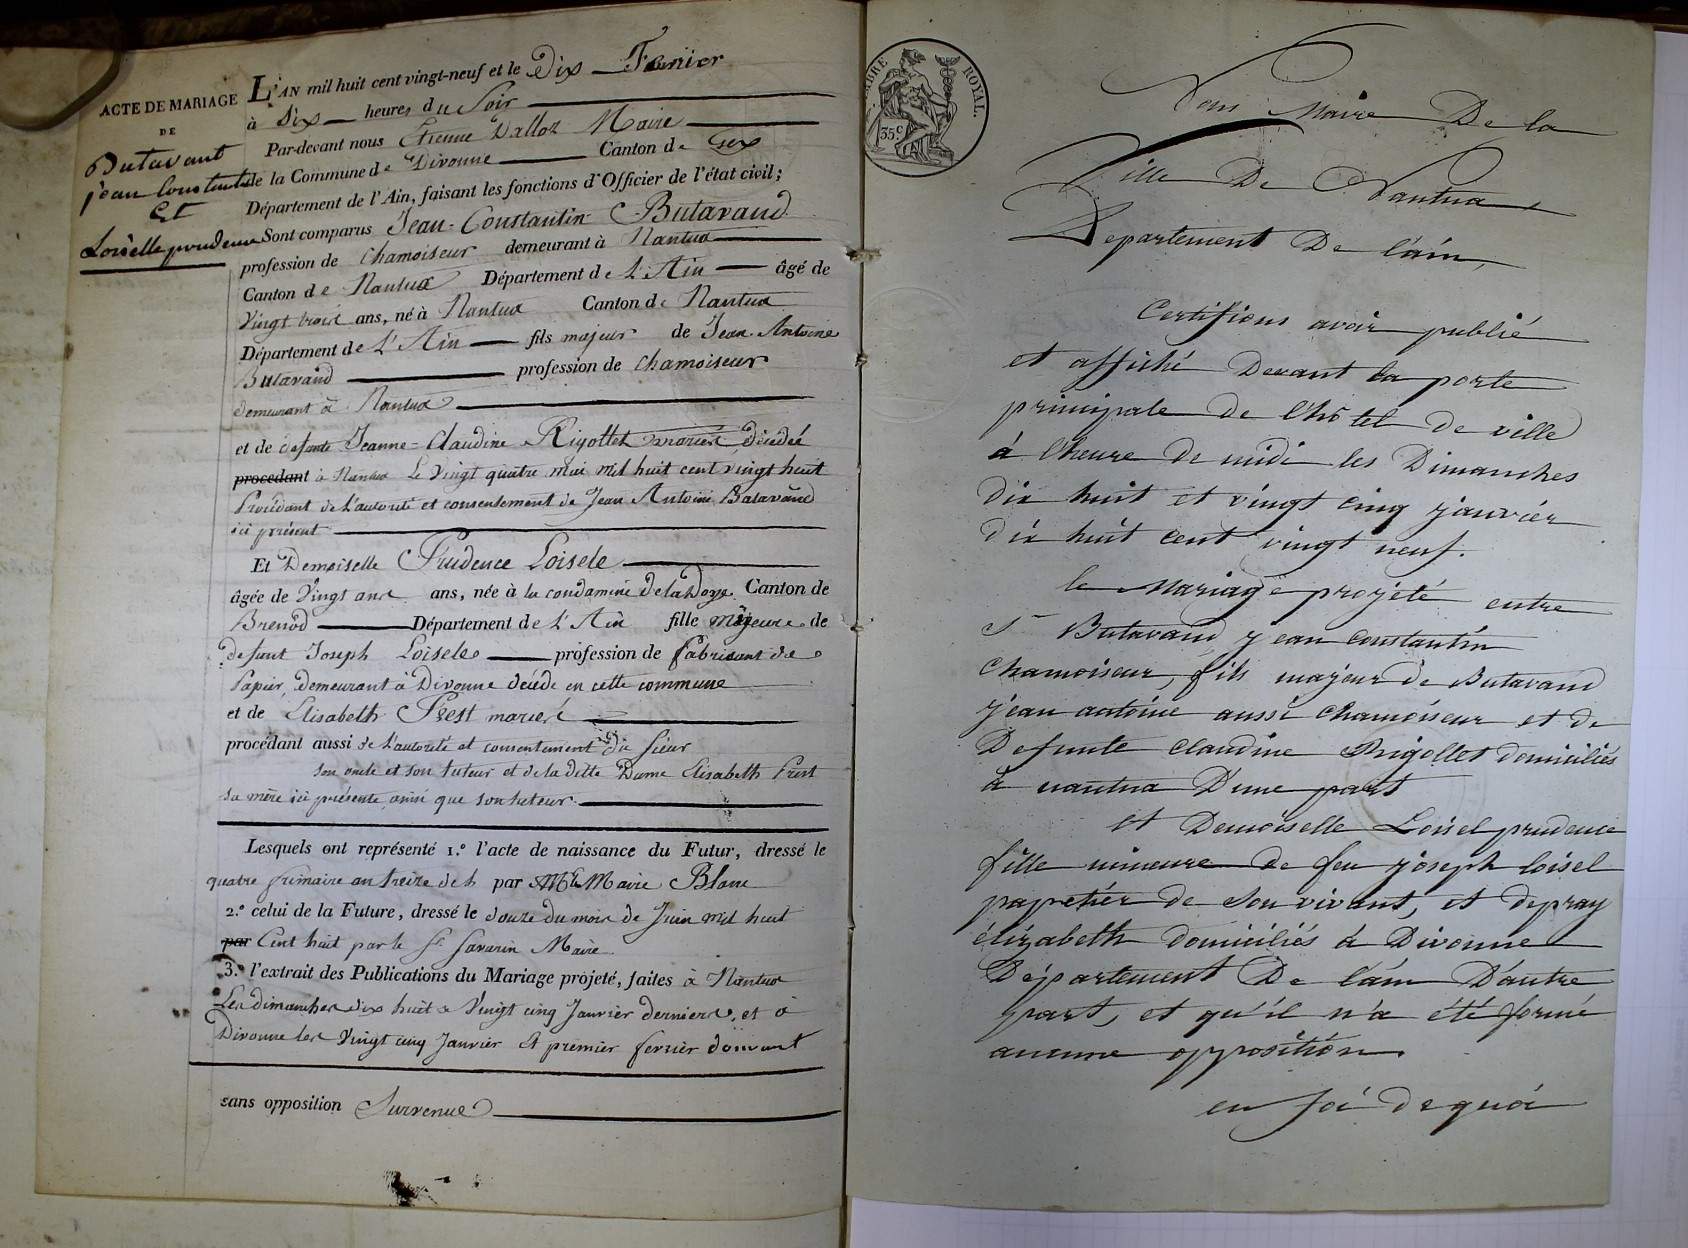 ACTE DE MARIAGE
DE
Butavant
jean Constantin
Et
Loiselle prudence
L'AN mil huit cent vingt-neuf et le Dix Fevrier
à Six heures du Soir
Par-devant nous Etienne Valloz Maire
de la Commune de Divonne Canton de Gex
Département de l'Ain, faisant les fonctions d'Officier de l'état civil;
Sont comparus Jean-Constantin Butavand
profession de Chamoiseur demeurant à Nantua
Canton de Nantua Département de L'Ain âgé de
Vingt trois ans, né à Nantua Canton de Nantua
Département de L'Ain fils majeur de Jean-Antoine
Butavand profession de Chamoiseur
demeurant à Nantua
et de defunte Jeanne-Claudine Rigottet mariés, décédée
procedant à Nantua Le Vingt quatre mai mil huit cent vingt huit
Procédant de L'autorité et consentement de Jean Antoine Butavand
ici présent
Et Demoiselle Prudence Loisele
âgée de Vingt ans ans, née à la condamine de la Doye Canton de
Brenod Département de L'Ain fille mineure de
defunt Joseph Loisele profession de fabricant de
Papier, demeurant à Divonne décédé en cette commune
et de Elisabeth Prest mariés
procédant aussi de L'autorité et consentement du Sieur
son oncle et son tuteur et de la dette Dame Elisabeth Prest
sa mère ici présente ainsi que son tuteur.
Lesquels ont représenté 1.º l'acte de naissance du Futur, dressé le
quatre frimaire an treize de h par Mr Maire Blanc
2.º celui de la Future, dressé le douze du mois de Juin mil huit
par Cent huit par le Sr Savarin Maire
3.º l'extrait des Publications du Mariage projeté, faites à Nantua
Les dimanches dix huit & Vingt cinq Janvier derniers, et à
Divonne les Vingt cinq Janvier et premier fevrier suivant
sans opposition Survenue
TIMBRE ROYAL.
35 c
Nous Maire De la
Ville De Nantua,
Departement De l'ain,
Certifions avoir publié
et affiché Devant la porte
principale De l'hôtel de ville
à l'heure De midi les Dimanches
dix huit et vingt cinq janvier
dix huit cent vingt neuf.
le Mariage projété entre
Sr Butavand jean constantin
chamoiseur, fils majeur de Butavand
jean antoine aussi chamoiseur et de
Defunte claudine Rigollet domiciliés
à nantua D'une part
et Demoiselle Loisel prudence
fille mineure de feu joseph loisel
papetier de son vivant, et de pray
élizabeth domiciliés à Divonne
Département De l'ain D'autre
part, et qu'il n'a été formé
aucune opposition.
en foi de quoi